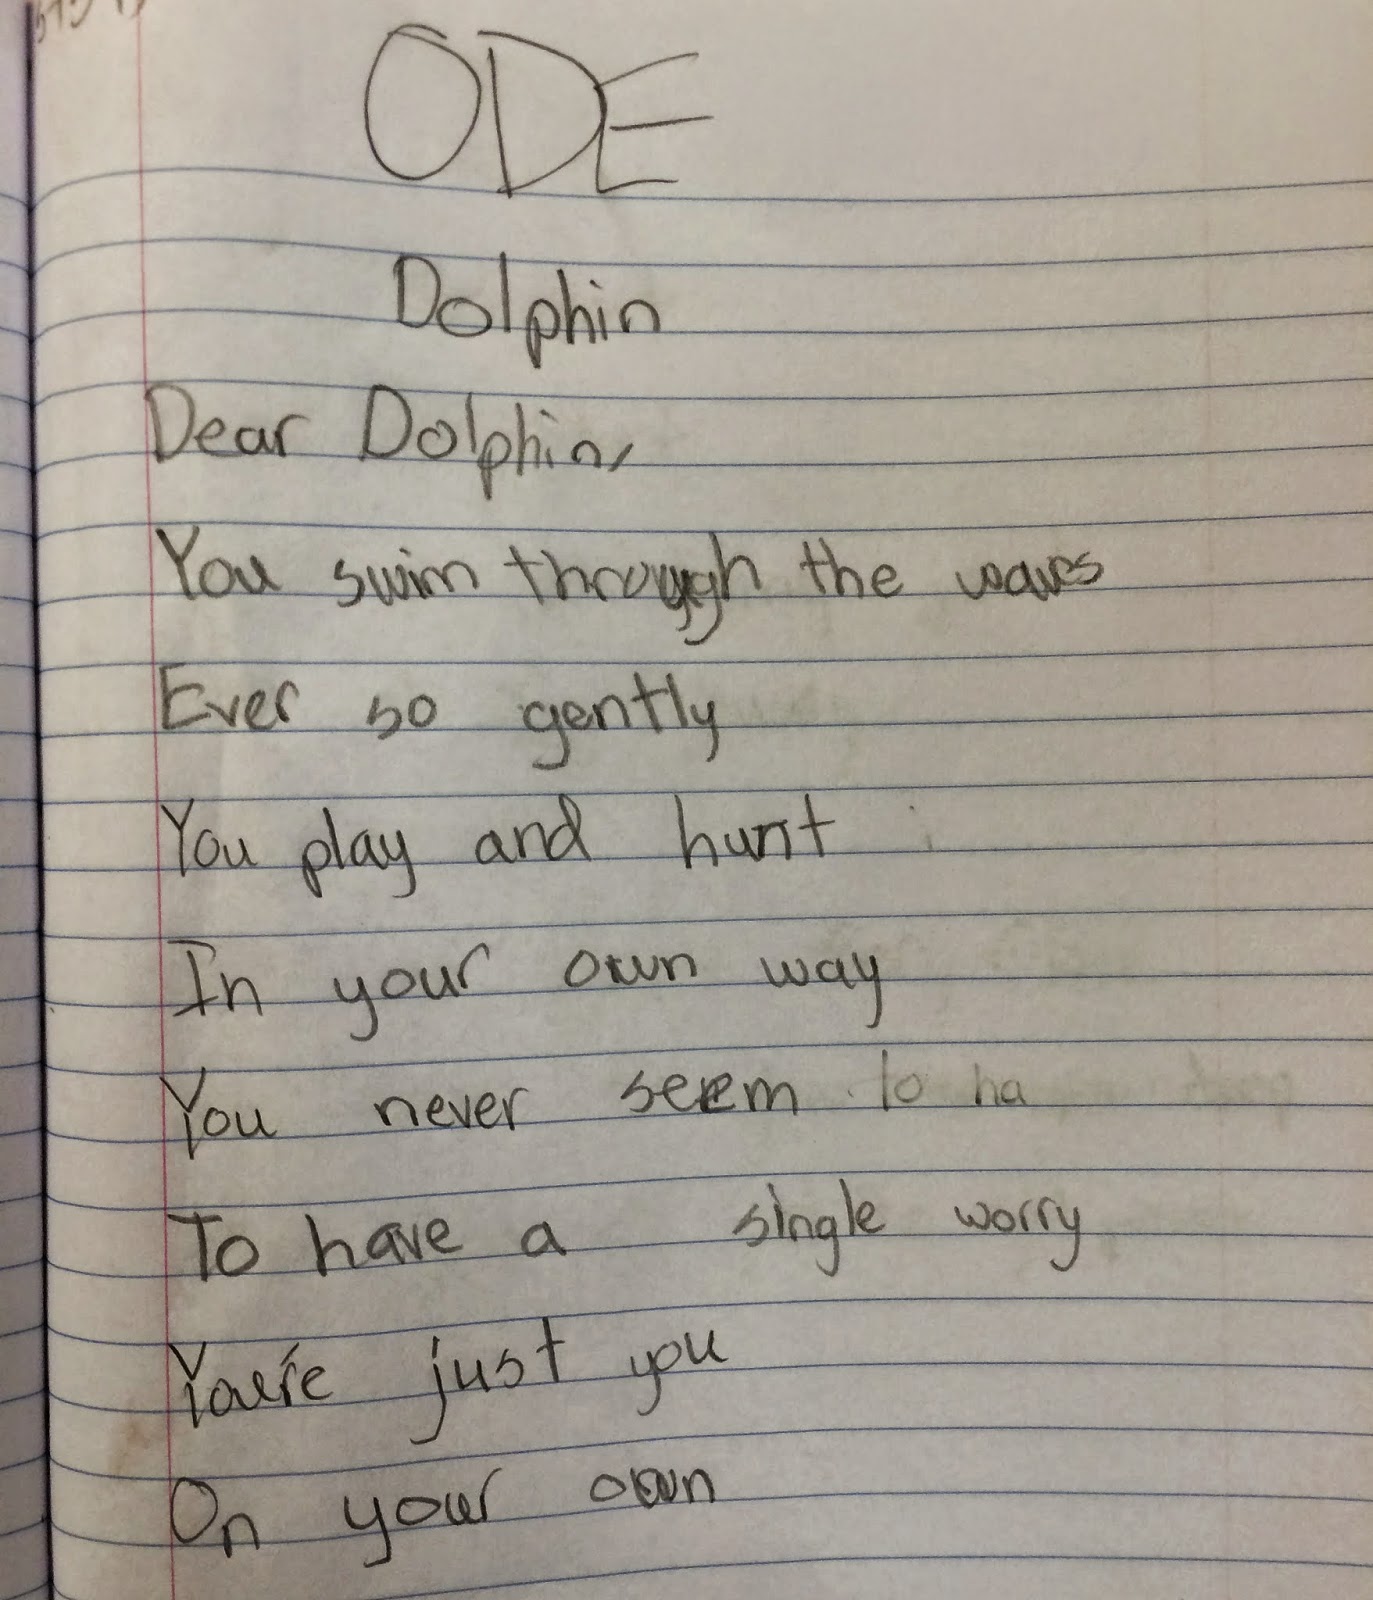 ODE
Dolphin
Dear Dolphin,
You swim through the waves
Ever so gently
You play and hunt
In your own way
You never seem to ha
To have a single worry
You're just you
On your own